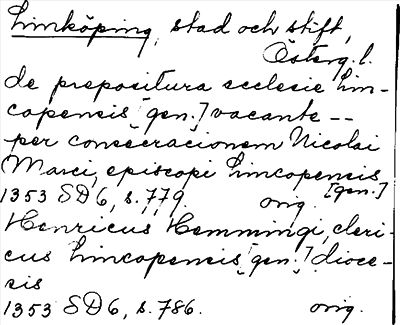 Linköping, stad och stift,
Österg. l.
de prepositura ecclesie Lin-
copensis [gen.] vacante --
per consecracionem Nicolai
Marci, episcopi Lincopensis
[gen.]
1353 SD 6, s. 779. orig.
Henricus Hemmingi, cleri-
cus Lincopensis [gen.] dioce-
sis
1353 SD 6, s. 786. orig.